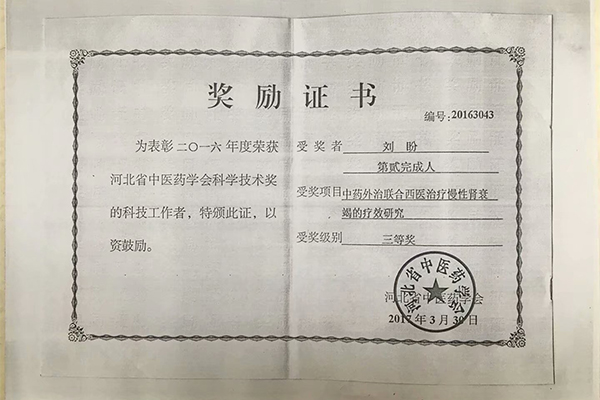 奖励证书
编号:20163043
为表彰二〇一六年度荣获
河北省中医药学会科学技术奖
的科技工作者，特颁此证，以
资鼓励。
受奖者 刘盼
第贰完成人
受奖项目 中药外治联合西医治疗慢性肾衰
竭的疗效研究
受奖级别 三等奖
河北省中医药学会
河北省中医药学会
2017年3月30日